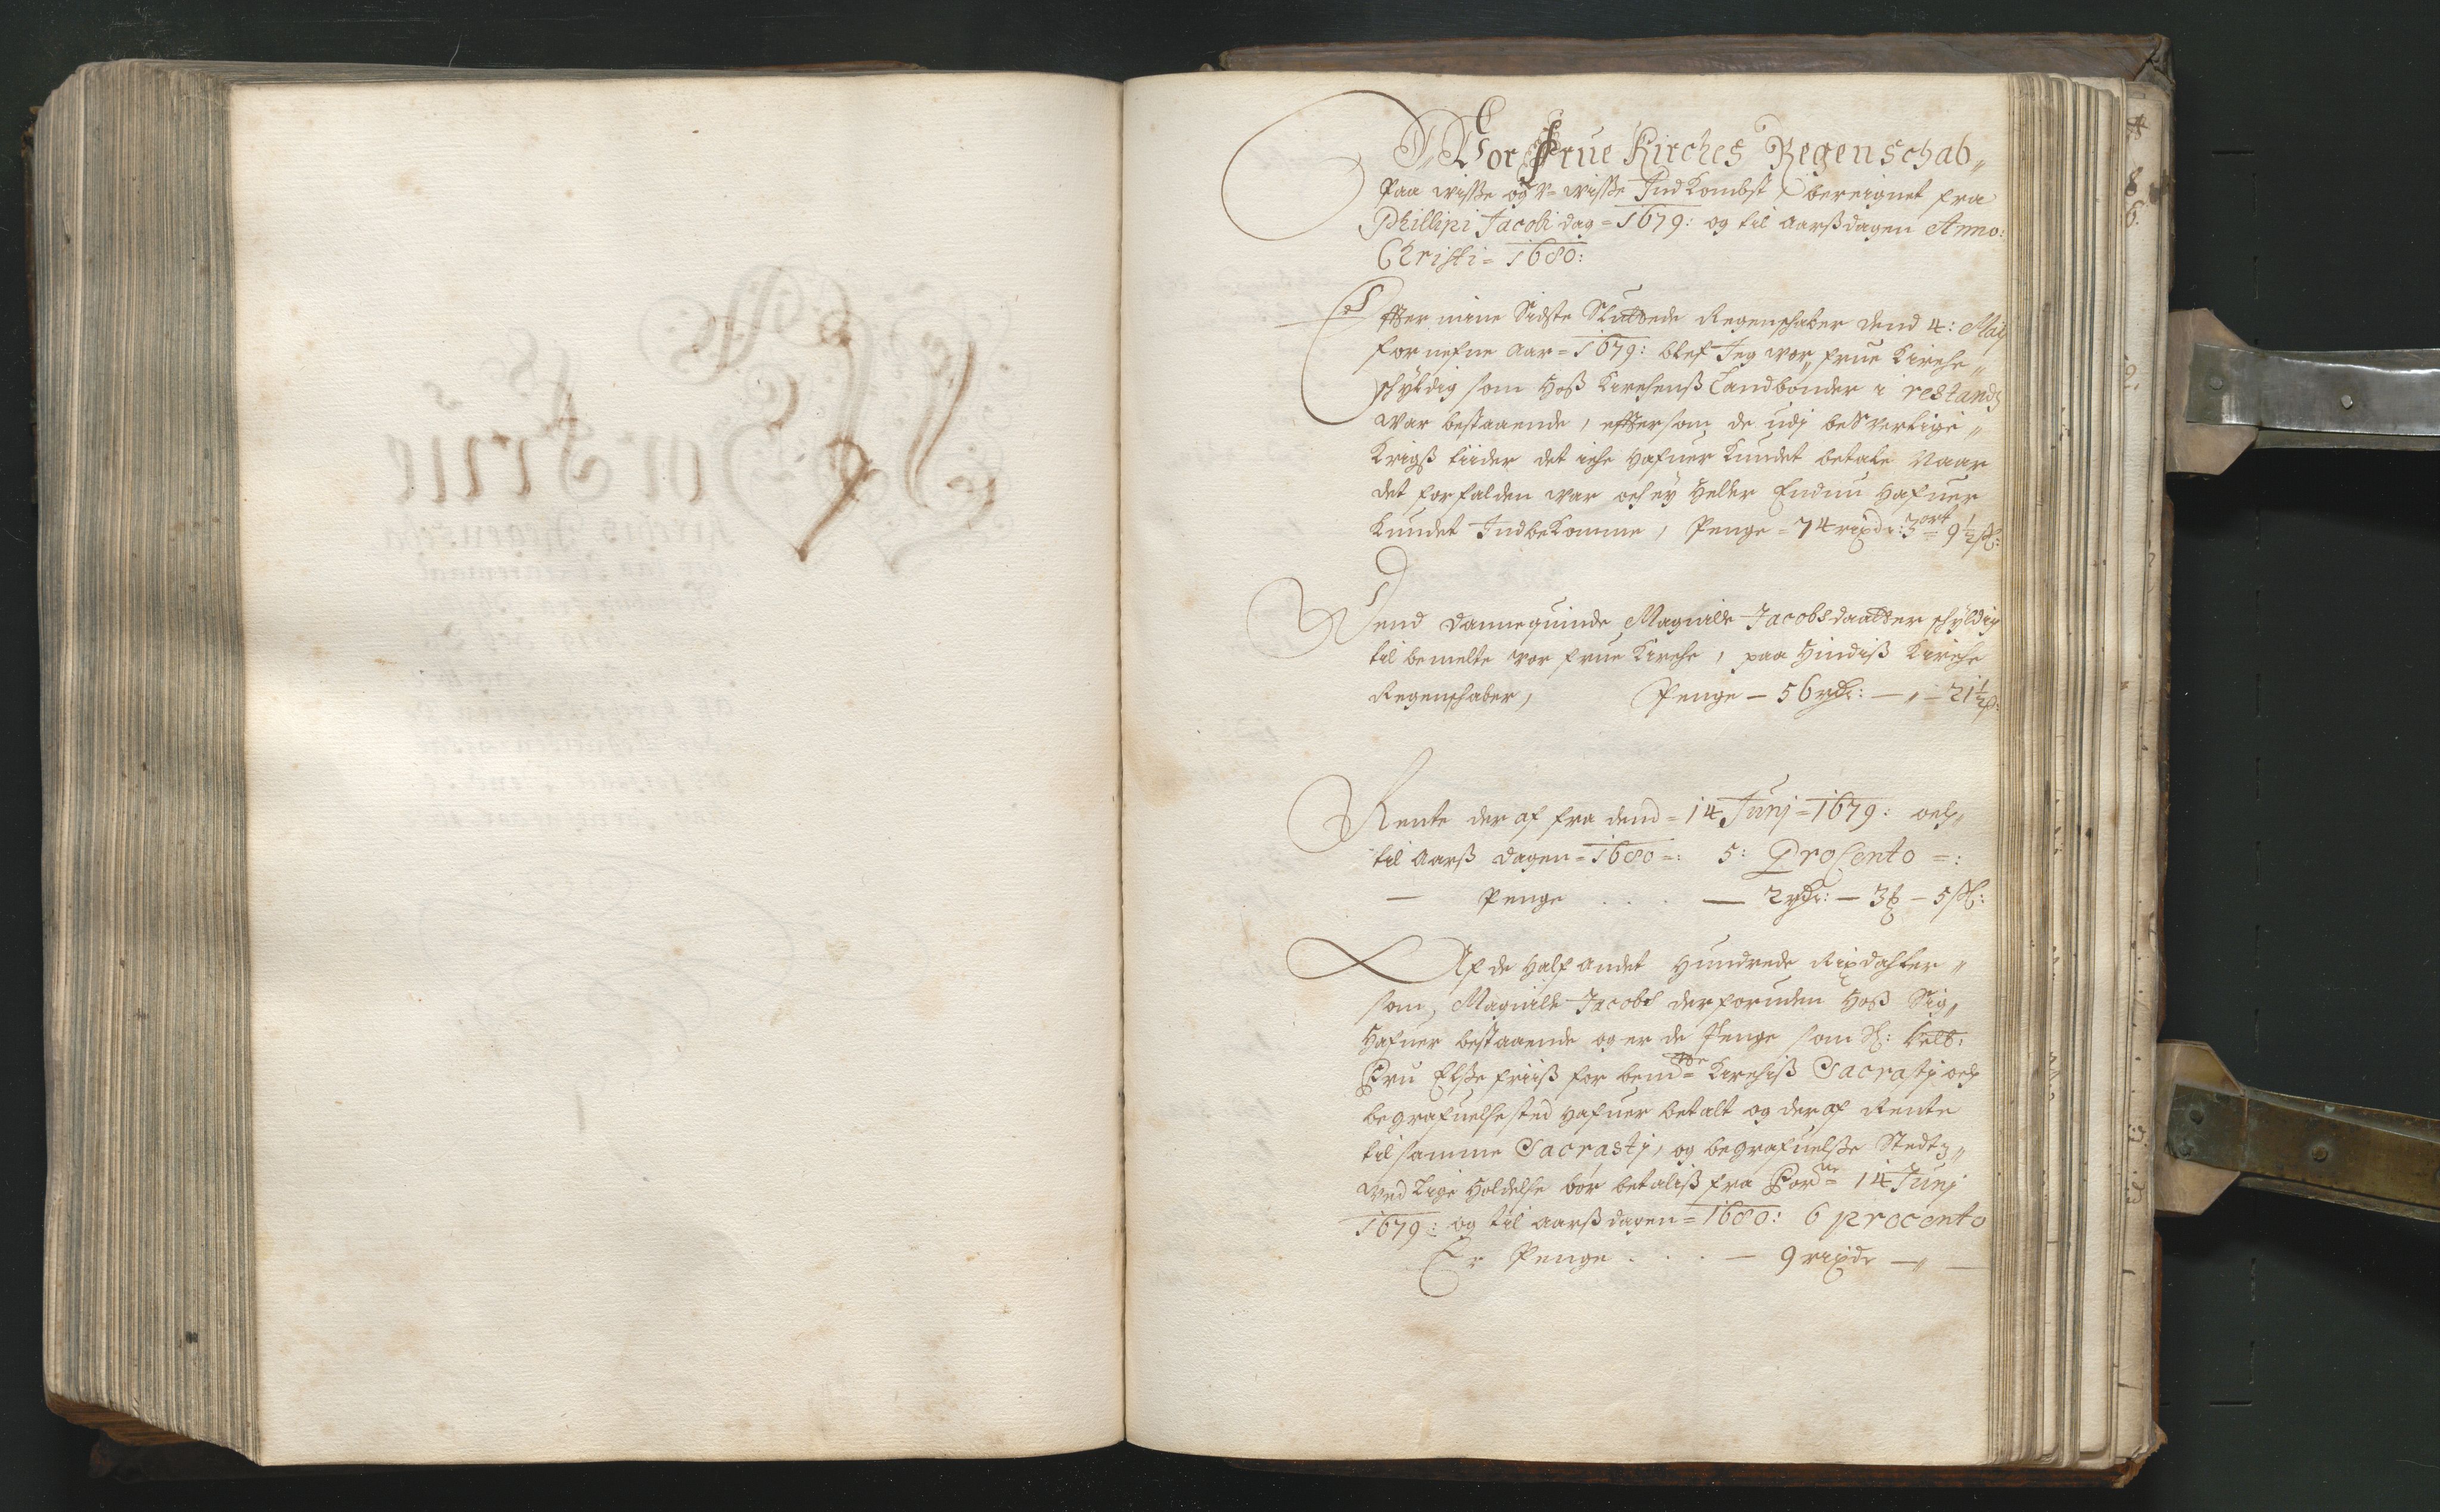 Vor Frue Kirches Regenschab„
Paa wisse og u-wisse Ind Kombst, bereignet fra
Phillipi Jacobi dag = 1679: og til aarßdagen Anno:
Christi = 1680:
Effter mine Sidste Sluttede Regenschaber dend 4: Maij
fornefne aar = 1679: blef Jeg wor„ frue Kirche„
schyldig som hoß Kirchenß Landbønder i restands
war bestaaende, efftersom de udj besverlige„
Krigß tiider det iche hafuer Kundet betale Naar
det forfalden war och ey heller Endnu hafuer
Kundet IndbeKomme, Penge = 74 rixdr: 3 ort 9½ ß:
Dend dannequinde Magnille Jacobsdaatter schyldig
til bemelte wor frue Kirche, paa Hindiß Kirche
Regenschaber, Penge – 56 rdr: — „ – 21½ ß:
Rente der af fra dend = 14 Junj = 1679: och„
til aarß dagen = 1680 =: 5: ProCento =:
— Penge . . . — 2 rdr: — 3 ₰ – 5 ß:
Af de half andet Hundrede Rixdahler„
som, Magnille Jacobs derforuden hoß Sig„
hafuer bestaaende og er de Penge som Sl: Velb:
Fru Elsse friiß for bemdte Kirchiß Sacrastj och
begrafuelsested hafuer betalt og der af Rente
til samme Sacrastj, og begrafuelsse Stedtz„
wed Lige holdelse bør betaliß fra Fordne 14 Junj
1679: og til aarßdagen = 1680: 6 procento
Er Penge . . . — 9 rixdr — „ —